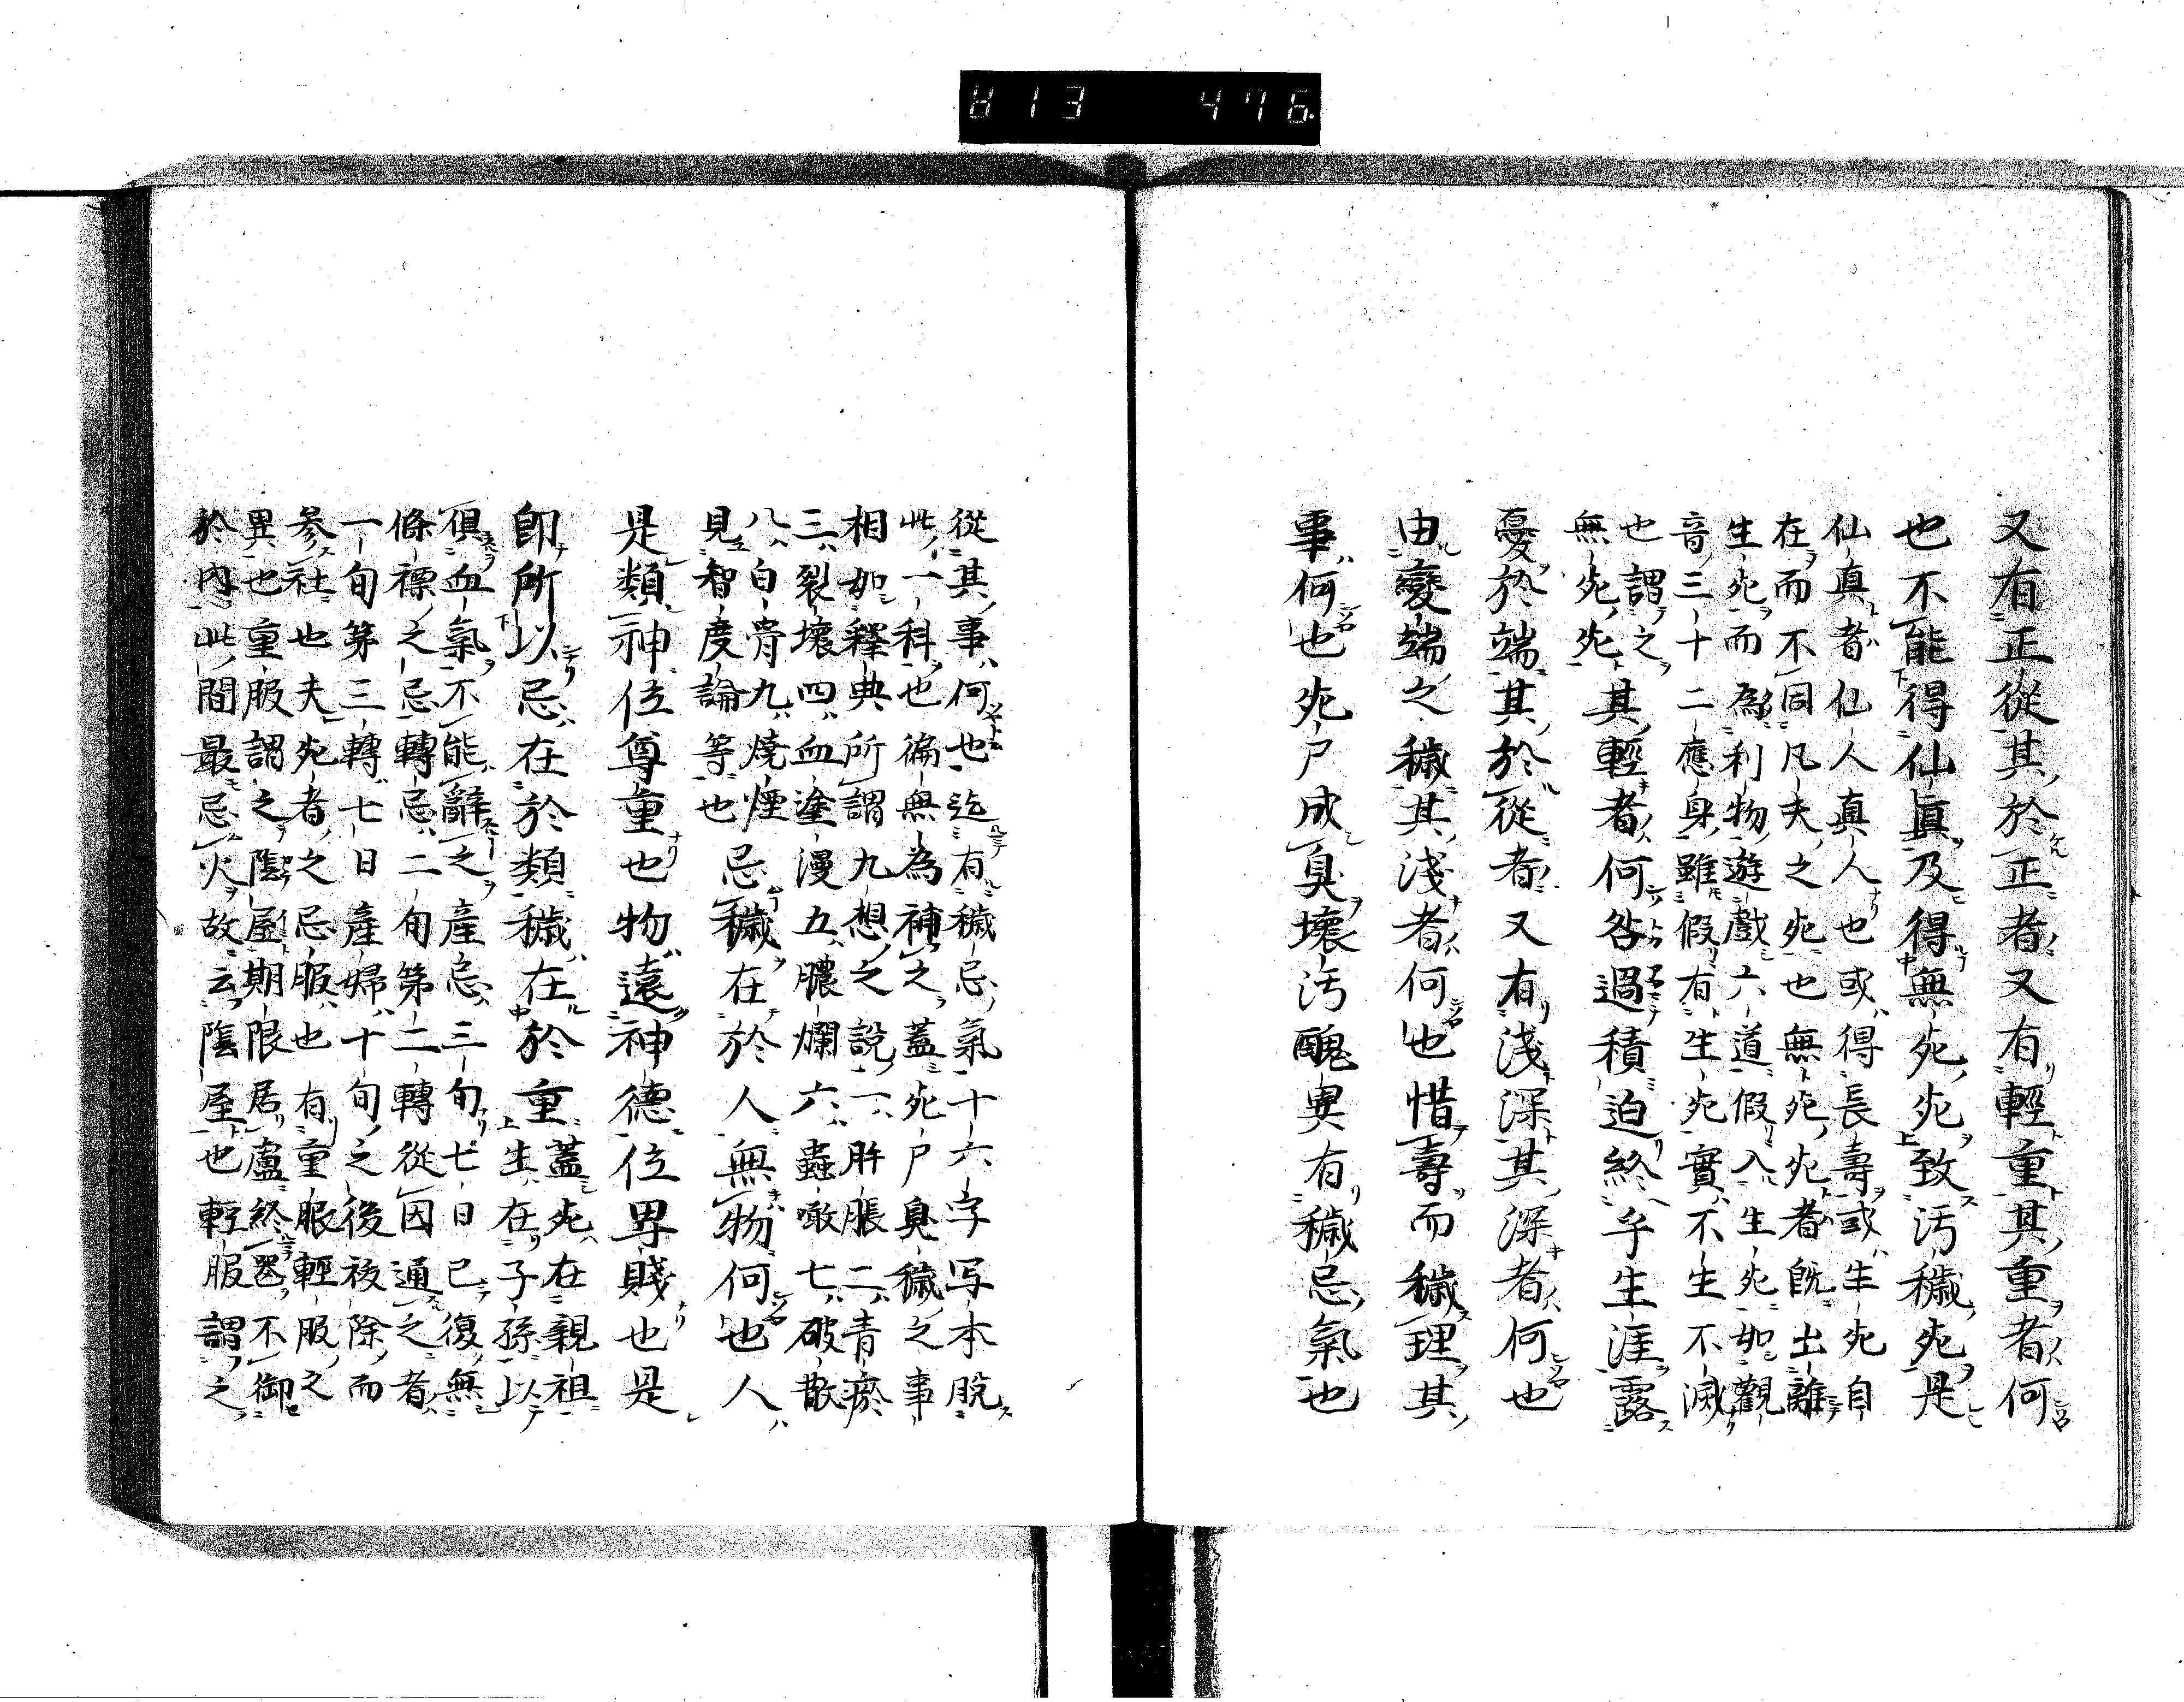 813 476
又有正從其於正者又有輕重其重者何
也不能得仙眞及得無死死致汚穢死是
仙真者仙人真人也或得長壽或生死自
在而不同凡夫之死也無死死者既出離
生死而為利物遊戲六道假入生死如觀
音三十二應身雖假有生死實不生不滅
也謂之
無死死其輕者何咎過積迫終乎生涯露
憂於端其於從者又有淺深其深者何也
由變端之穢其淺者何也惜壽而穢理其
事何也死尸成臭壞汚醜異有穢忌氣也
從其事何也迄有穢忌氣十六字写本脱
此一科也徧無為補之蓋死尸臭穢之事
相如釋典所謂九想之說一胮脹二青瘀
三裂壞四血塗漫五膿爛六蟲噉七破散
八白骨九燒煙
見智度論等也忌穢在於人無物何也人
是類神位尊重也物遠神德位卑賤也是
卽所以忌在於類穢在於重蓋死在親祖
生在子孫以
俱血氣不能辭之產忌三旬七日已復無
條禫之忌轉忌二旬第二轉從因通之者
一旬第三轉七日產婦十旬之後祓除而
參社也夫死者之忌服也有重服輕服之
異也重服謂之陰屋期限居盧終器不御
於内此間最忌火故云陰屋也輕服謂之